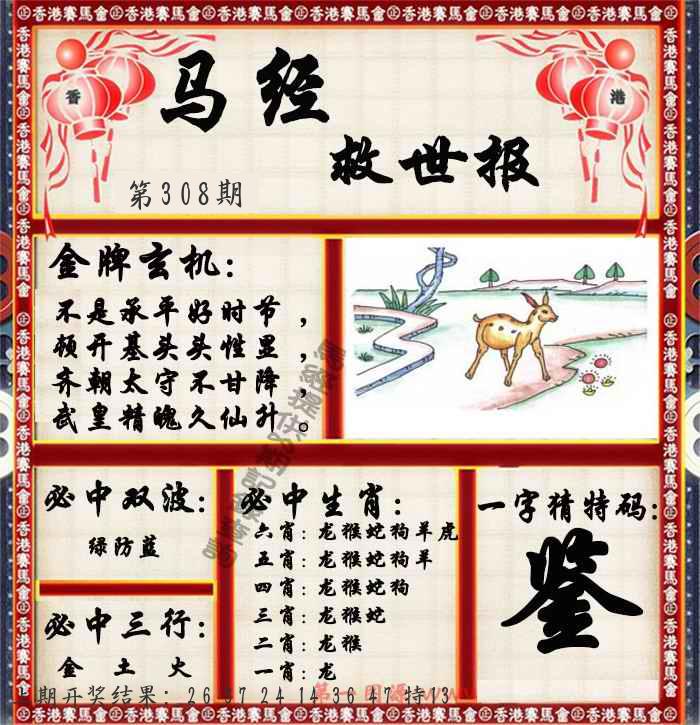 香港賽馬會
香
港
马经
救世报
第308期
金牌玄机：
不是承平好时节，
顿开基头头性显，
齐朝太守不甘降，
武皇精魄久仙升。
必中双波：
绿防蓝
必中三行：
金 土 火
必中生肖：
六肖：龙猴蛇狗羊虎
五肖：龙猴蛇狗羊
四肖：龙猴蛇狗
三肖：龙猴蛇
二肖：龙猴
一肖：龙
一字猜特码：
鉴
期开奖结果：26 37 24 14 36 47 特13